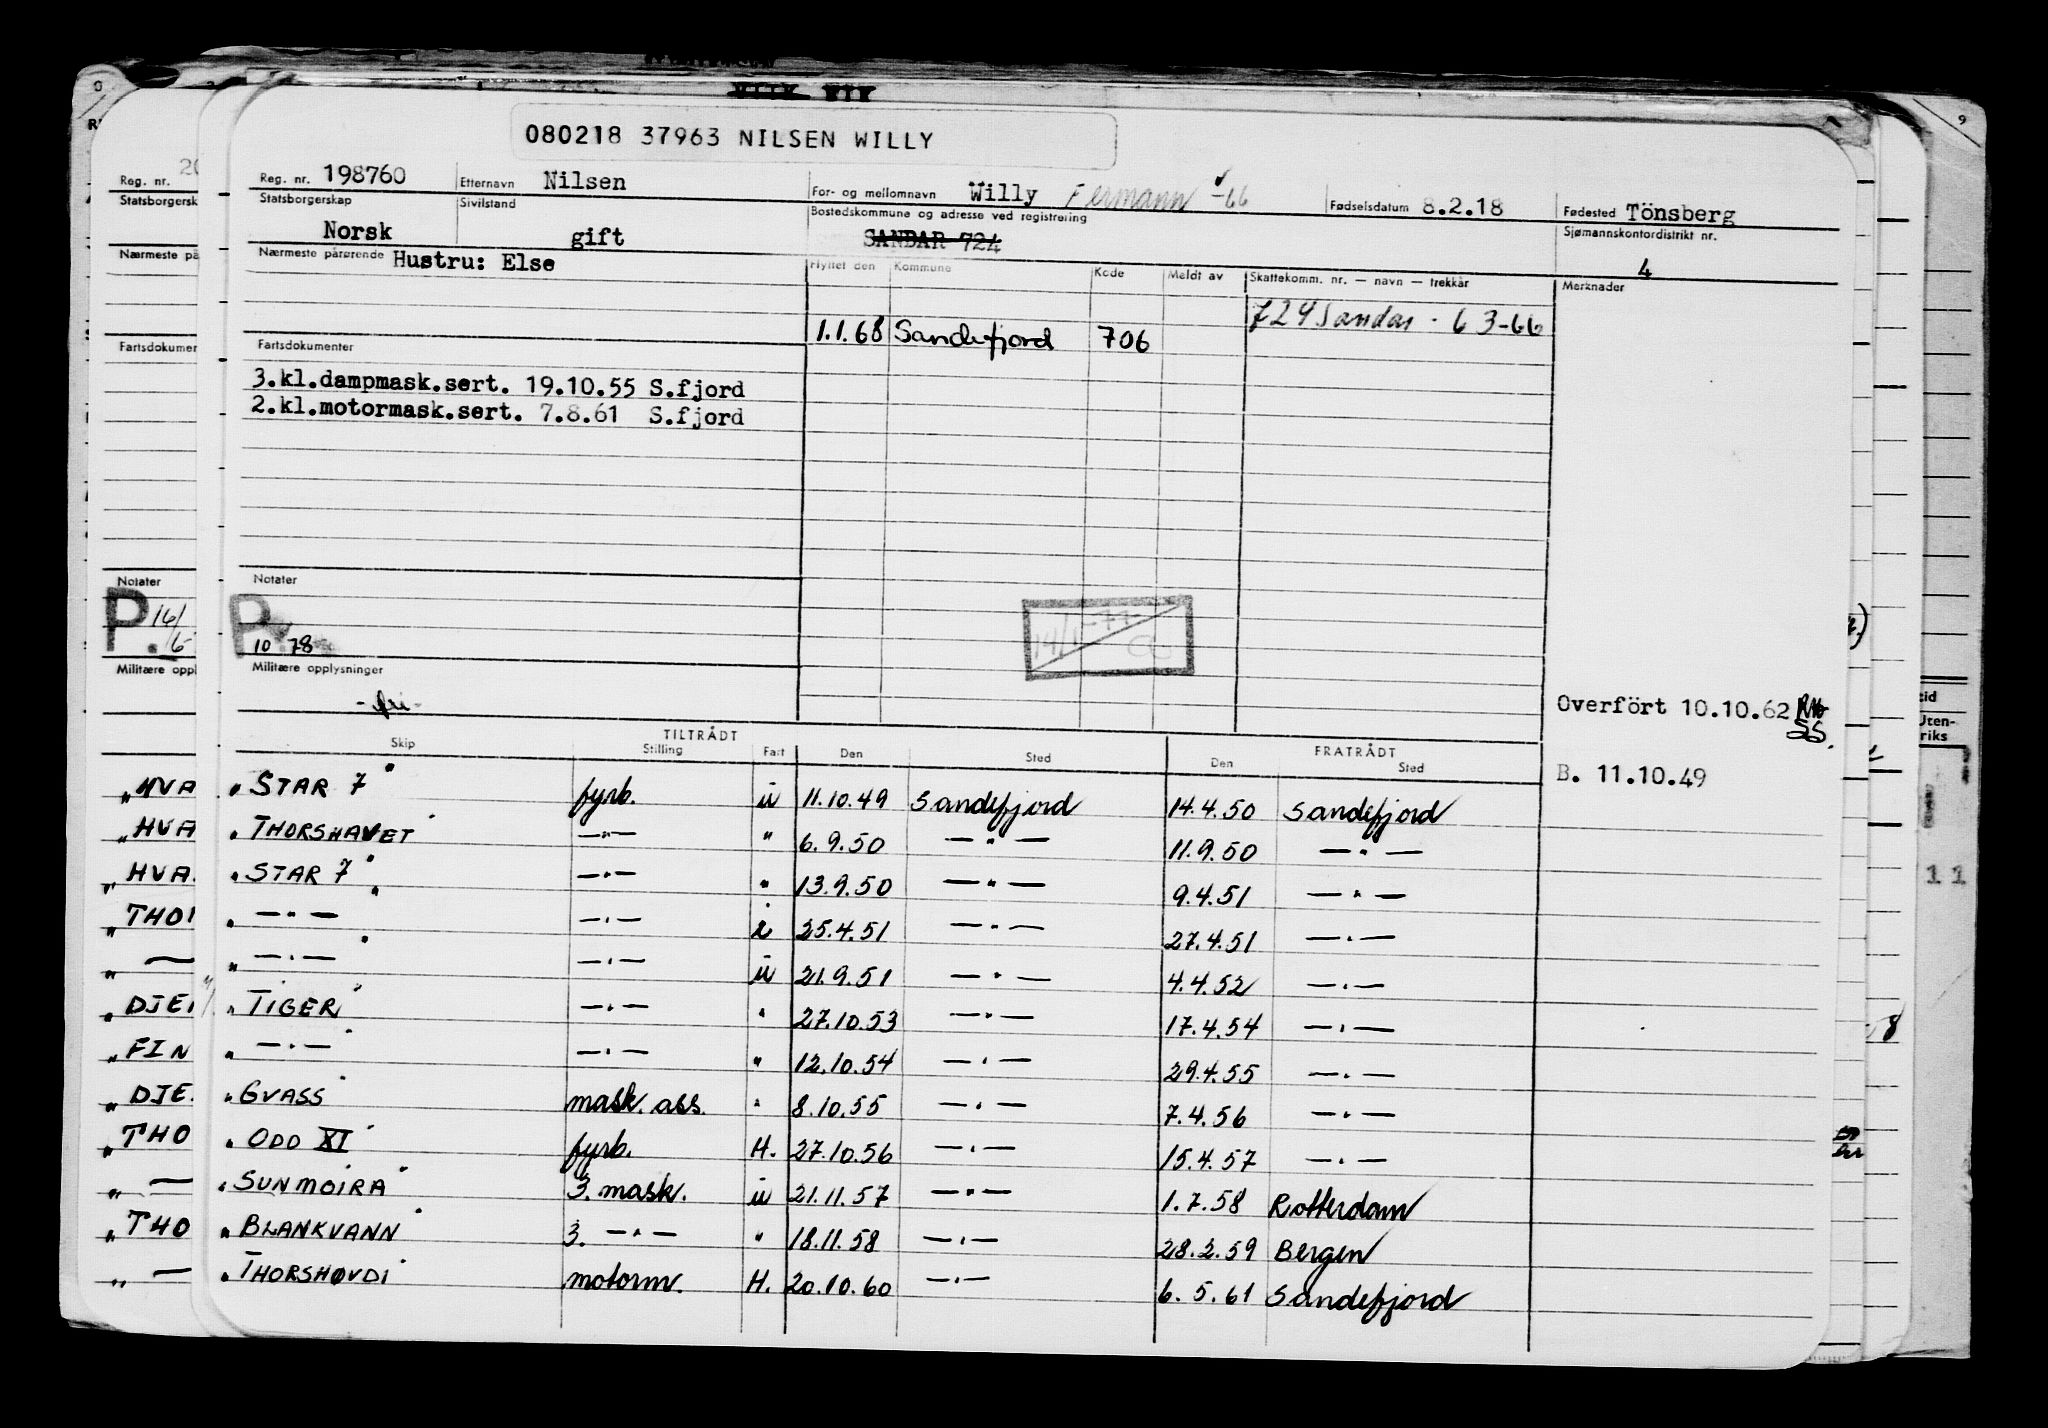 080218 37963 NILSEN WILLY
Reg. nr. 198760 Etternavn Nilsen For- og mellomnavn Willy Fermann -66 Fødselsdatum 8.2.18 Fødested Tönsberg
Statsborgerskap Norsk Sivilstand gift Bostedskommune og adresse ved registrering SANDAR 724 Sjømannskontordistrikt nr. 4
Nærmeste pårørende Hustru: Else Flyttet den Kommune Kode Meldt av Skattekomm. nr. — navn — trekkår Merknader
724 Sandar - 6 3-66
1.1.68 Sandefjord 706
Fartsdokumenter
3.kl.dampmask.sert. 19.10.55 S.fjord
2.kl.motormask.sert. 7.8.61 S.fjord
Notater
P. 10 78
14/1-77
Militære opplysninger
-fri-
Overfört 10.10.62
TILTRÅDT FRATRÅDT
Skip Stilling Fart Den Sted Den Sted
B. 11.10.49
"STAR 7" fyrb. u 11.10.49 Sandefjord 14.4.50 Sandefjord
"THORSHAVET" —"— " 6.9.50 —"— 11.9.50 —"—
"STAR 7" —"— " 13.9.50 —"— 9.4.51 —"—
"—"—" —"— i 25.4.51 —"— 27.4.51 —"—
"—"—" —"— u 21.9.51 —"— 4.4.52 —"—
"TIGER" —"— " 27.10.53 —"— 17.4.54 —"—
"—"—" —"— " 12.10.54 —"— 29.4.55 —"—
"GVASS" mask. ass. " 8.10.55 —"— 7.4.56 —"—
"ODD XI" fyrb. H. 27.10.56 —"— 15.4.57 —"—
"SUNMOIRA" 3. mask. u 21.11.57 —"— 1.7.58 Rotterdam
"BLANKVANN" 3. —"— " 18.11.58 —"— 28.2.59 Bergen
"THORSHØVDI" motorm. H. 20.10.60 —"— 6.5.61 Sandefjord
Reg. nr.
Statsborgersk
Nærmeste på
Fartsdokumen
Notater
P. 16/6
Militære oppl
"HVA
"HVA
"HVA
"THO
"—
"DJE
"FIN
"DJE
"THO
"—
"THO
"—
11